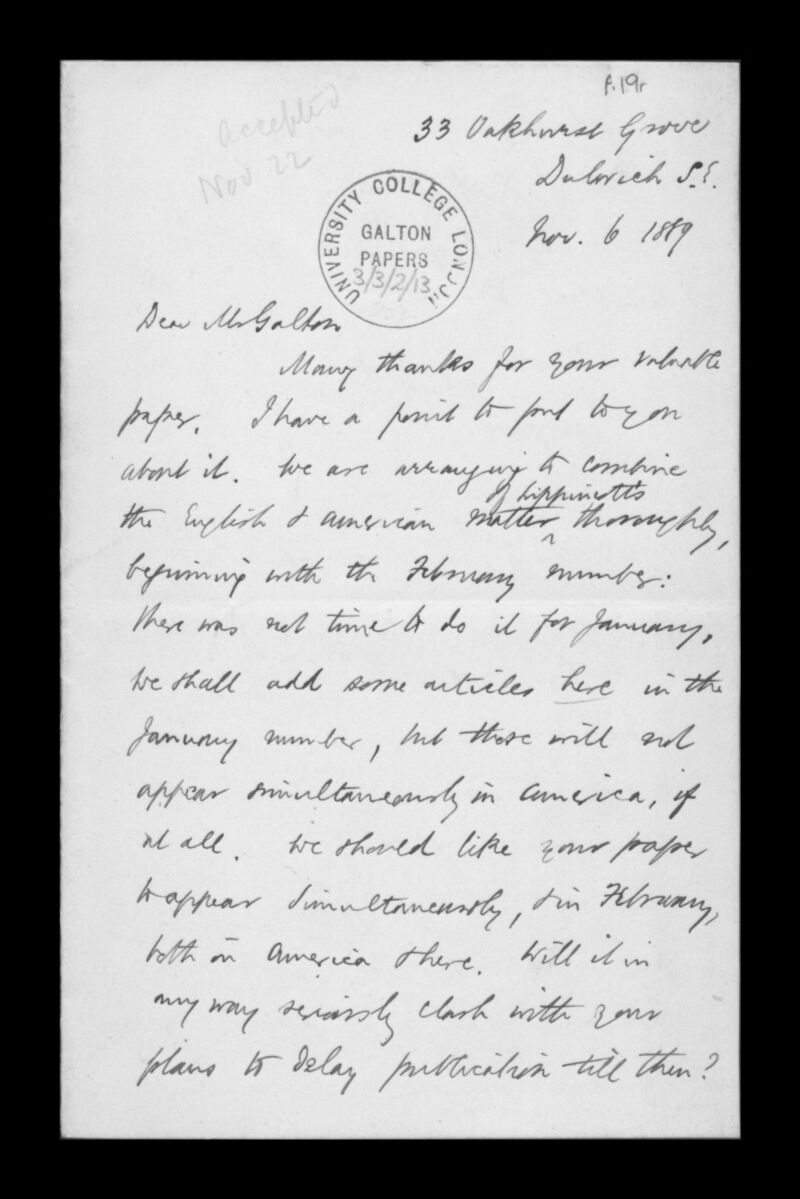 f.19r
accepted
Nov 22
33 Oakhurst Grove
Dulwich S.E.
Nov. 6 1889
UNIVERSITY COLLEGE LONDON
GALTON
PAPERS
3/3/2/13
Dear Mr Galton
Many thanks for your valuable
paper. I have a point to put to you
about it. We are arranging to combine
of Lippincott's
the English & American matter ^ thoroughly,
beginning with the February number:
there was not time to do it for January.
We shall add some articles here in the
January number, but these will not
appear simultaneously in America, if
at all. We should like your paper
to appear simultaneously, & in February,
both in America & here. Will it in
any way seriously clash with your
plans to delay publication till then?